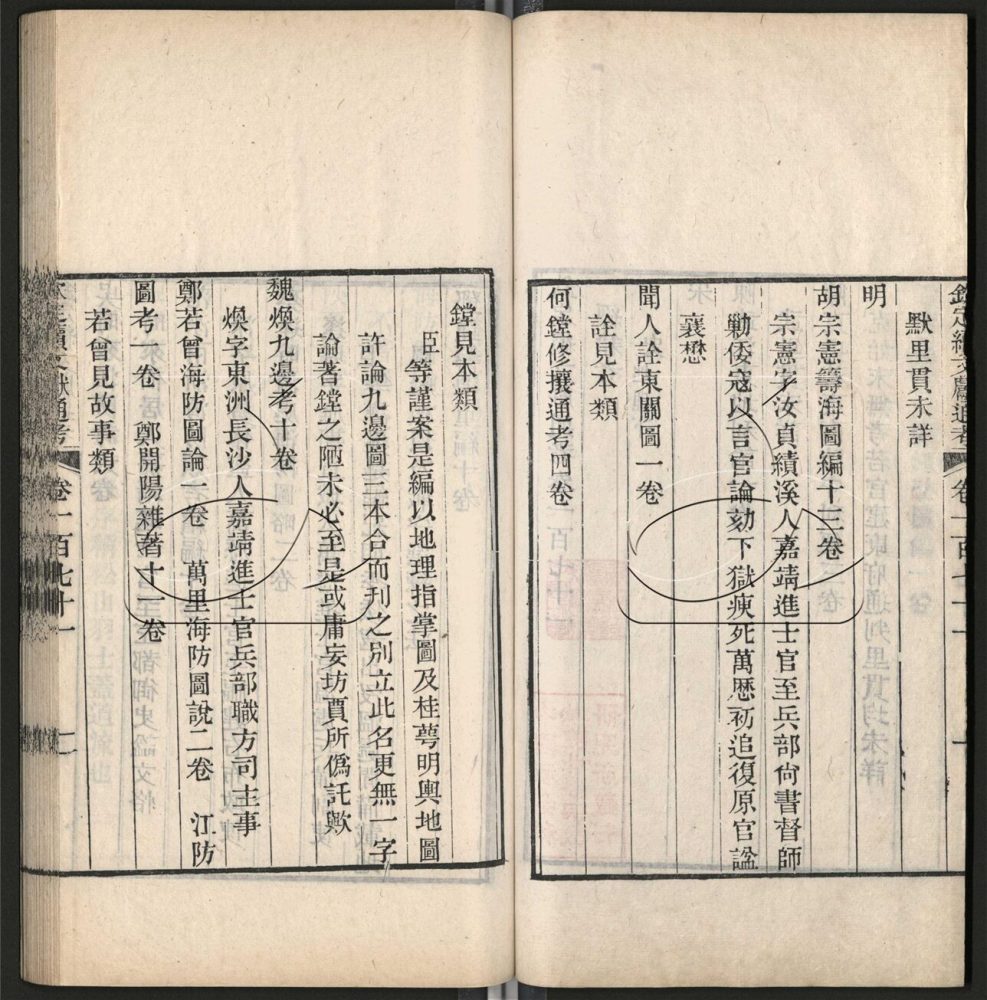 欽定續文獻通考 卷一百七十一
默里貫未詳
明
胡宗憲籌海圖編十三卷
宗憲字汝貞績溪人嘉靖進士官至兵部尙書督師
勦倭寇以言官論劾下獄瘐死萬厯初追復原官諡
襄懋
聞人詮東關圖一卷
詮見本類
何鏜修攘通考四卷
鏜見本類
臣等謹案是編以地理指掌圖及桂萼明輿地圖
許論九邊圖三本合而刊之別立此名更無一字
論著鏜之陋未必至是或庸妄坊賈所僞託歟
魏煥九邊考十卷
煥字東洲長沙人嘉靖進士官兵部職方司主事
鄭若曾海防圖論一卷 萬里海防圖說二卷 江防
圖考一卷 鄭開陽雜著十一卷
若曾見故事類
卷一百七十一